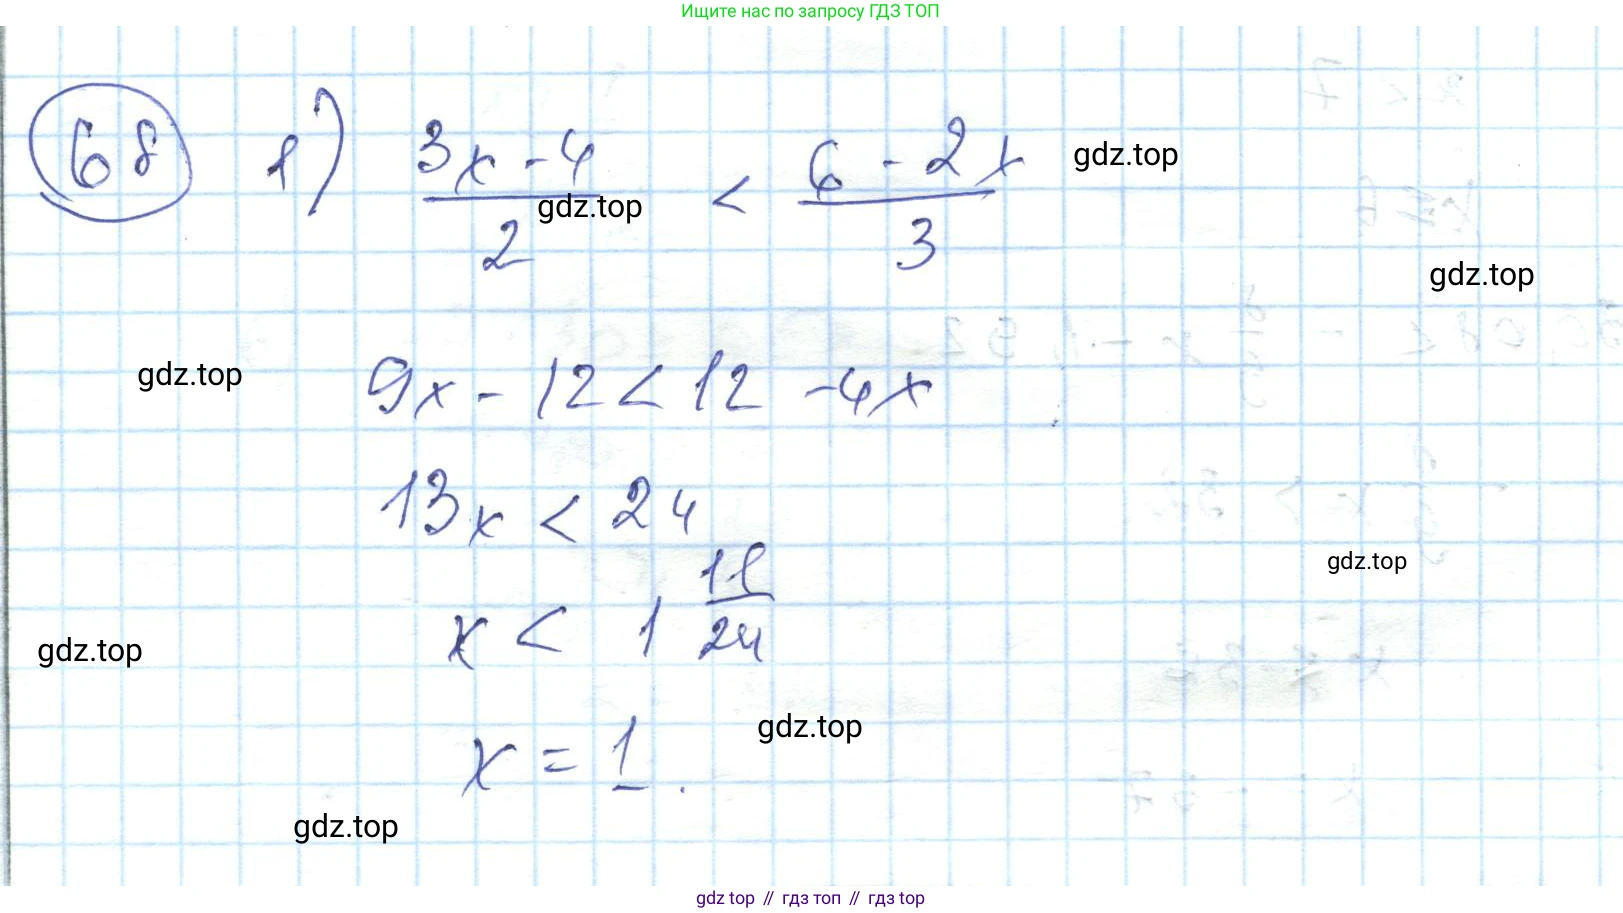 Ищите нас по запросу ГДЗ ТОП
68 1) (3x - 4)/2 < (6 - 2x)/3
gdz.top
gdz.top
gdz.top
gdz.top
9x - 12 < 12 - 4x
13x < 24
gdz.top
x < 1 11/24
gdz.top
gdz.top
x = 1.
gdz.top
gdz top // гдз топ // гдз top